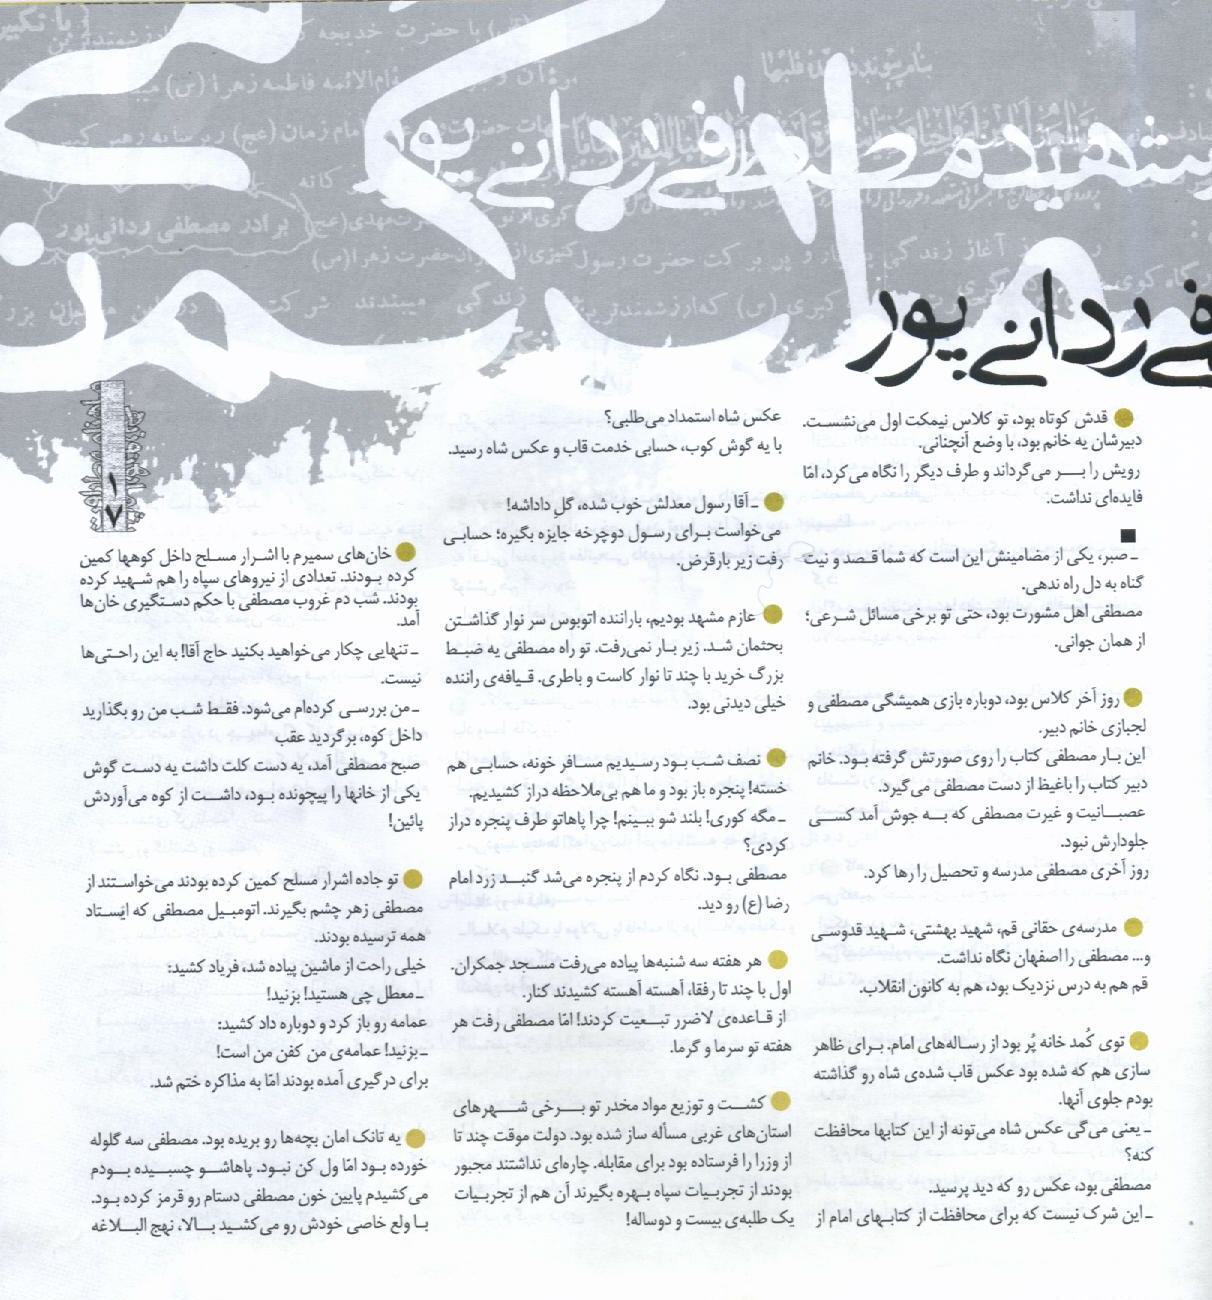 شهید مصطفی ردانی پور
ردانی پور
برادر مصطفی ردانی پور
قدش کوتاه بود، تو کلاس نیمکت اول می‌نشست.
دبیرشان یه خانم بود، با وضع آنچنانی.
رویش را بر می‌گرداند و طرف دیگر را نگاه می‌کرد، امّا
فایده‌ای نداشت.
ـ صبر، یکی از مضامینش این است که شما قصد و نیت
گناه به دل راه ندهی.
مصطفی اهل مشورت بود، حتی تو برخی مسائل شرعی؛
از همان جوانی.
روز آخر کلاس بود، دوباره بازی همیشگی مصطفی و
لجبازی خانم دبیر.
این بار مصطفی کتاب را روی صورتش گرفته بود. خانم
دبیر کتاب را باغیظ از دست مصطفی می‌گیرد.
عصبانیت و غیرت مصطفی که به جوش آمد کسی
جلودارش نبود.
روز آخری مصطفی مدرسه و تحصیل را رها کرد.
مدرسه‌ی حقانی قم، شهید بهشتی، شهید قدوسی
و... مصطفی را اصفهان نگاه نداشت.
قم هم به درس نزدیک بود، هم به کانون انقلاب.
توی کُمد خانه پُر بود از رساله‌های امام. برای ظاهر
سازی هم که شده بود عکس قاب شده‌ی شاه رو گذاشته
بودم جلوی آنها.
ـ یعنی می‌گی عکس شاه می‌تونه از این کتابها محافظت
کنه؟
مصطفی بود، عکس رو که دید پرسید.
ـ این شرک نیست که برای محافظت از کتابهای امام از
عکس شاه استمداد می‌طلبی؟
با یه گوش کوب، حسابی خدمت قاب و عکس شاه رسید.
ـ آقا رسول معدلش خوب شده، گلِ داداشه!
می‌خواست برای رسول دوچرخه جایزه بگیره؛ حسابی
رفت زیر بارقرض.
عازم مشهد بودیم، باراننده اتوبوس سر نوار گذاشتن
بحثمان شد. زیر بار نمی‌رفت. تو راه مصطفی یه ضبط
بزرگ خرید با چند تا نوار کاست و باطری. قیافه‌ی راننده
خیلی دیدنی بود.
نصف شب بود رسیدیم مسافر خونه، حسابی هم
خسته! پنجره باز بود و ما هم بی‌ملاحظه دراز کشیدیم.
ـ مگه کوری! بلند شو ببینم! چرا پاهاتو طرف پنجره دراز
کردی؟
مصطفی بود. نگاه کردم از پنجره می‌شد گنبد زرد امام
رضا (ع) رو دید.
هر هفته سه شنبه‌ها پیاده می‌رفت مسجد جمکران.
اول با چند تا رفقا، آهسته آهسته کشیدند کنار.
از قاعده‌ی لاضرر تبعیت کردند! امّا مصطفی رفت هر
هفته تو سرما و گرما.
کشت و توزیع مواد مخدر تو برخی شهرهای
استان‌های غربی مسأله ساز شده بود. دولت موقت چند تا
از وزرا را فرستاده بود برای مقابله. چاره‌ای نداشتند مجبور
بودند از تجربیات سپاه بهره بگیرند آن هم از تجربیات
یک طلبه‌ی بیست و دوساله!
۱
۷
خان‌های سمیرم با اشرار مسلح داخل کوهها کمین
کرده بودند. تعدادی از نیروهای سپاه را هم شهید کرده
بودند. شب دم غروب مصطفی با حکم دستگیری خان‌ها
آمد.
ـ تنهایی چکار می‌خواهید بکنید حاج آقا! به این راحتی‌ها
نیست.
ـ من بررسی کرده‌ام می‌شود. فقط شب من رو بگذارید
داخل کوه، برگردید عقب
صبح مصطفی آمد، یه دست کلت داشت یه دست گوش
یکی از خانها را پیچونده بود، داشت از کوه می‌آوردش
پائین!
تو جاده اشرار مسلح کمین کرده بودند می‌خواستند از
مصطفی زهر چشم بگیرند. اتومبیل مصطفی که ایستاد
همه ترسیده بودند.
خیلی راحت از ماشین پیاده شد، فریاد کشید:
ـ معطل چی هستید! بزنید!
عمامه رو باز کرد و دوباره داد کشید:
ـ بزنید! عمامه‌ی من کفن من است!
برای درگیری آمده بودند امّا به مذاکره ختم شد.
یه تانک امان بچه‌ها رو بریده بود. مصطفی سه گلوله
خورده بود امّا ول کن نبود. پاهاشو چسبیده بودم
می‌کشیدم پایین خون مصطفی دستام رو قرمز کرده بود.
با ولع خاصی خودش رو می‌کشید بالا، نهج البلاغه